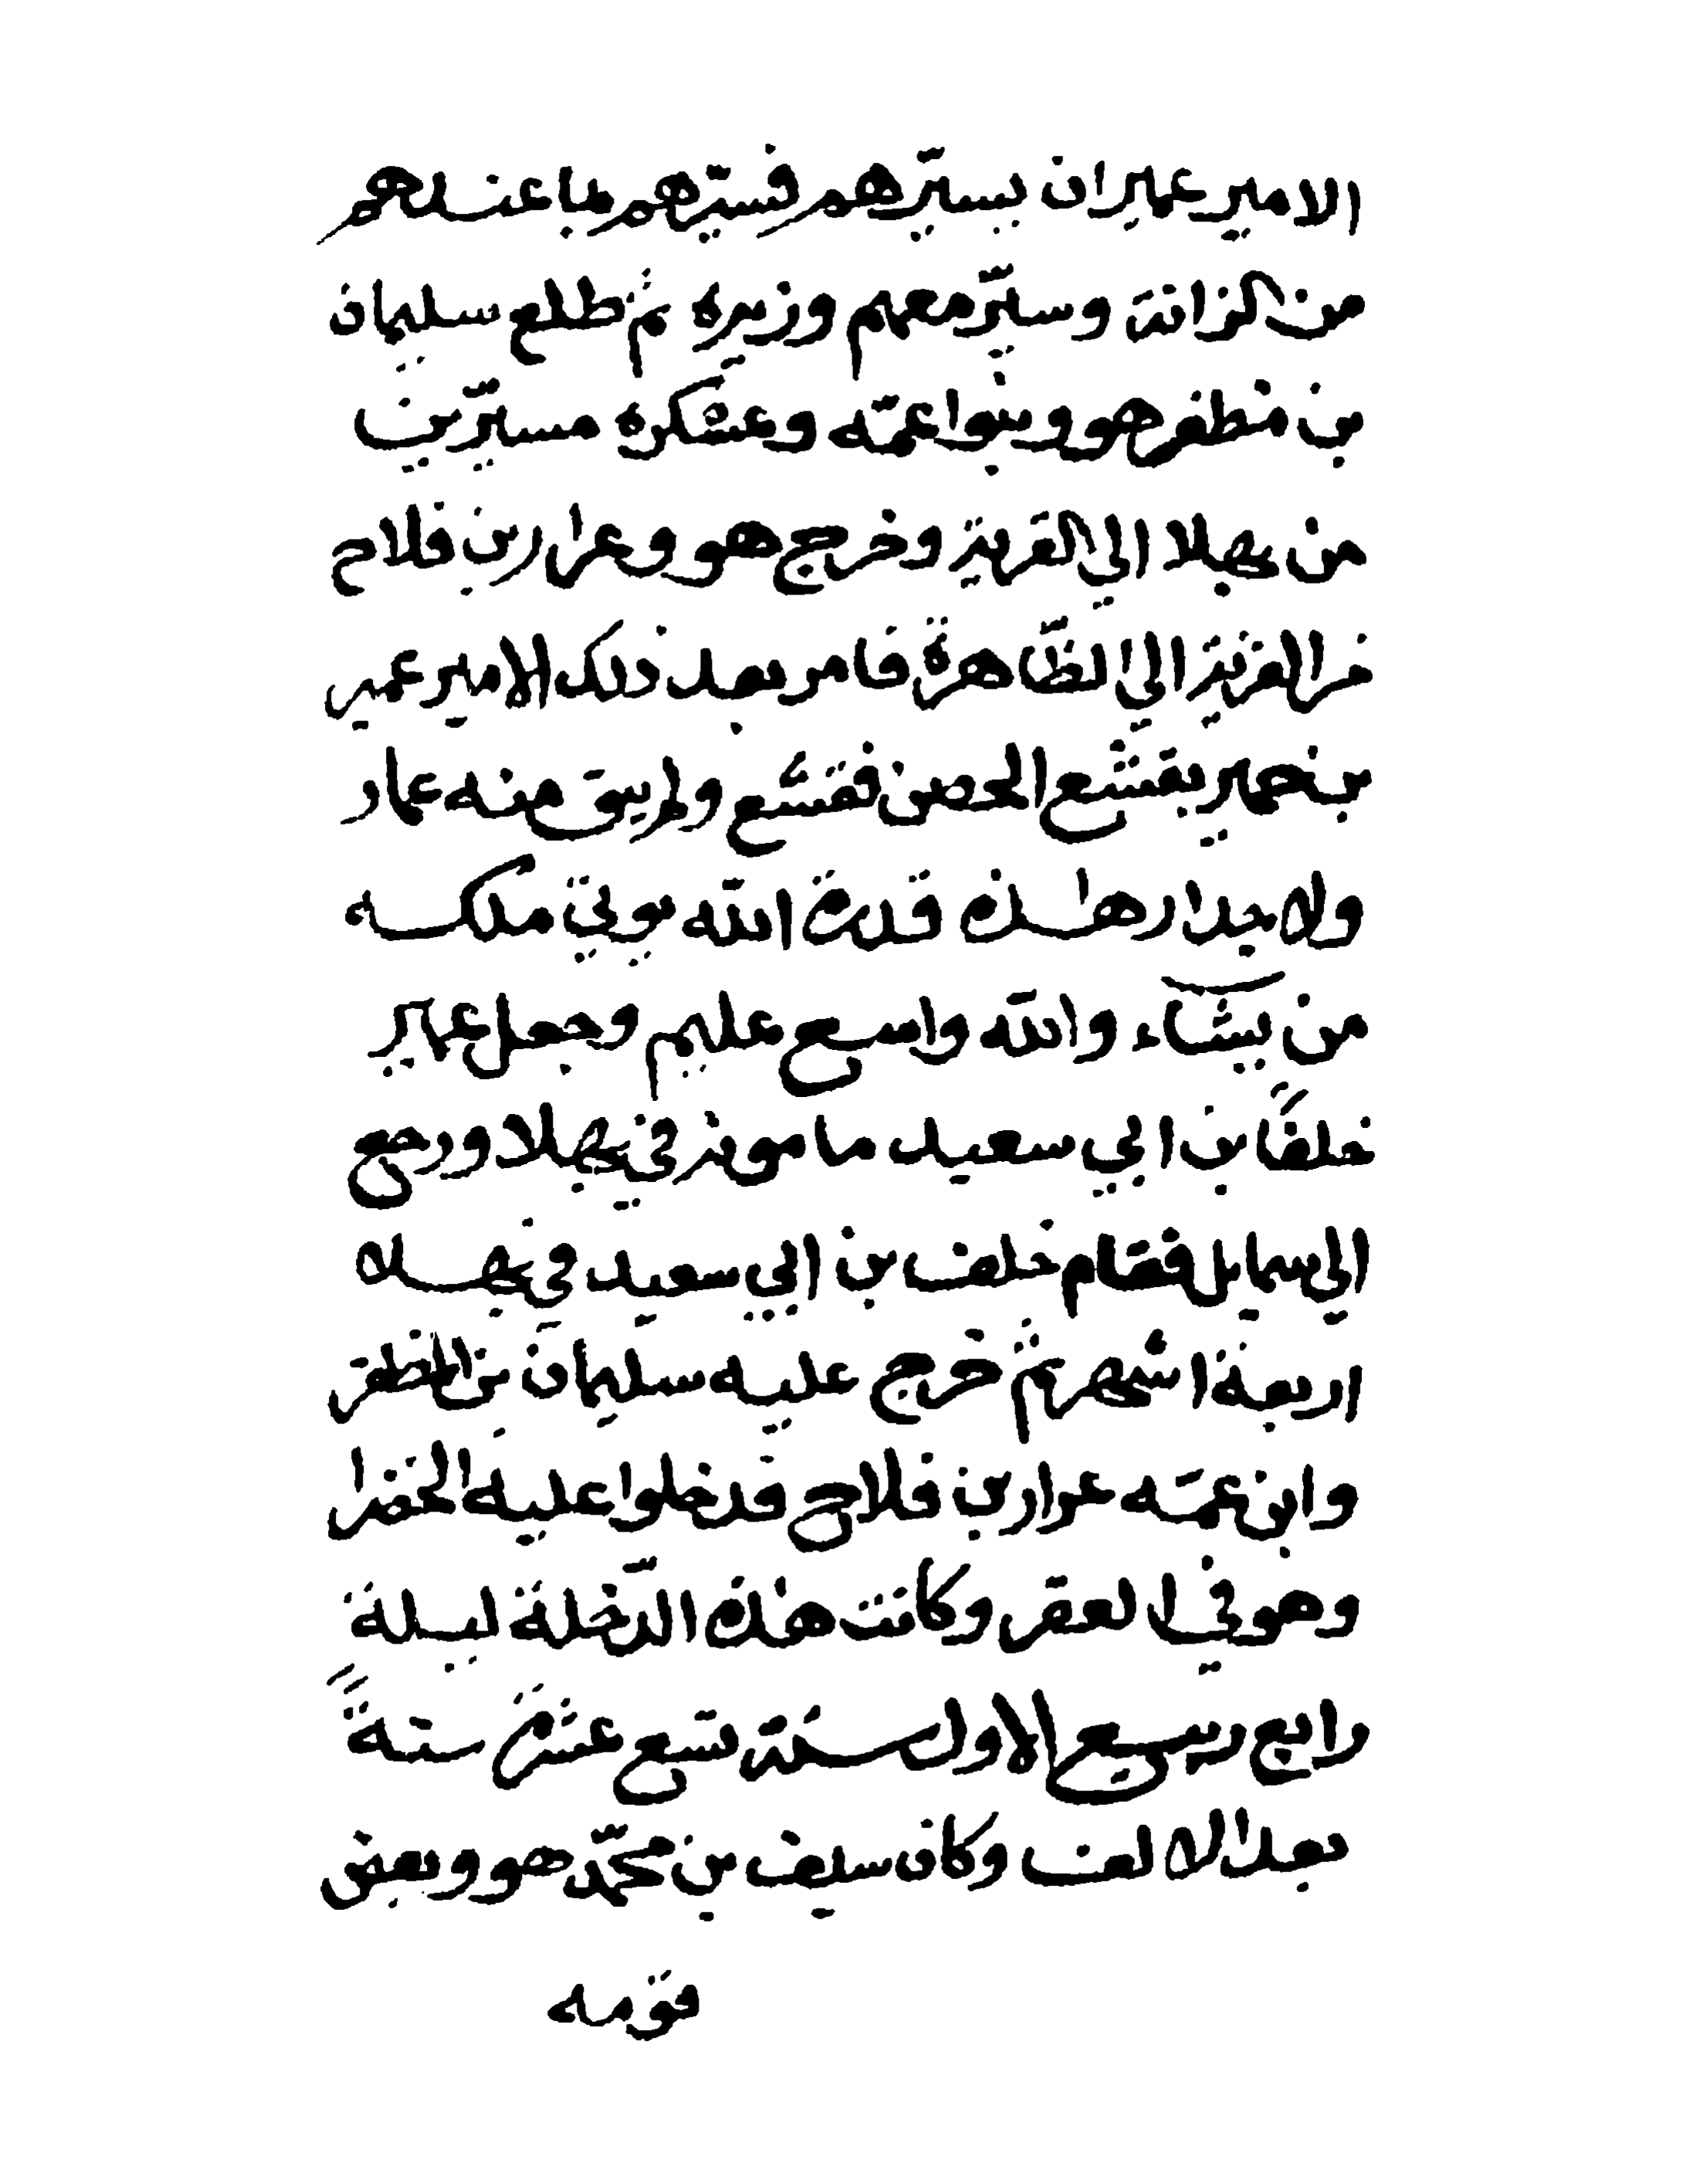 الامير عمير ان يسيّرهم فسيّرهم بما عندهم
من الزانة وسيّر معهم وزيره ثم طلع سليمان
بن مظفر هو وبنوا عمّه وعسكره مسيّرين
من بهلا الي القرية وخرج هو وعرار بن فلاح
من القرية الي الظّاهرة فامر بعد ذلك الامير عمير
بن حمير بقشع الحصن فقشع ولم يبق منه عمار
ولا جدار هذه قدرة الله يوتي ملكه
من يشآء والله واسع عليم وجعل عمير
خلفًا بن ابي سعيد مامونه في بهلا ورجع
الي سمايل فقام خلف بن ابي سعيد في بهلا
اربعة اشهر ثم خرج عليه سليمان بن المظفر
وابن عمّه عرار بن فلاح فدخلوا عليه الخضرا
وهو في العقر وكانت هذه الدّخلة ليلة
رابع ربيع الاول سنة تسع عشرة سنةً
بعد الالف وكان سيف بن محمّد هو وبعض
قومه